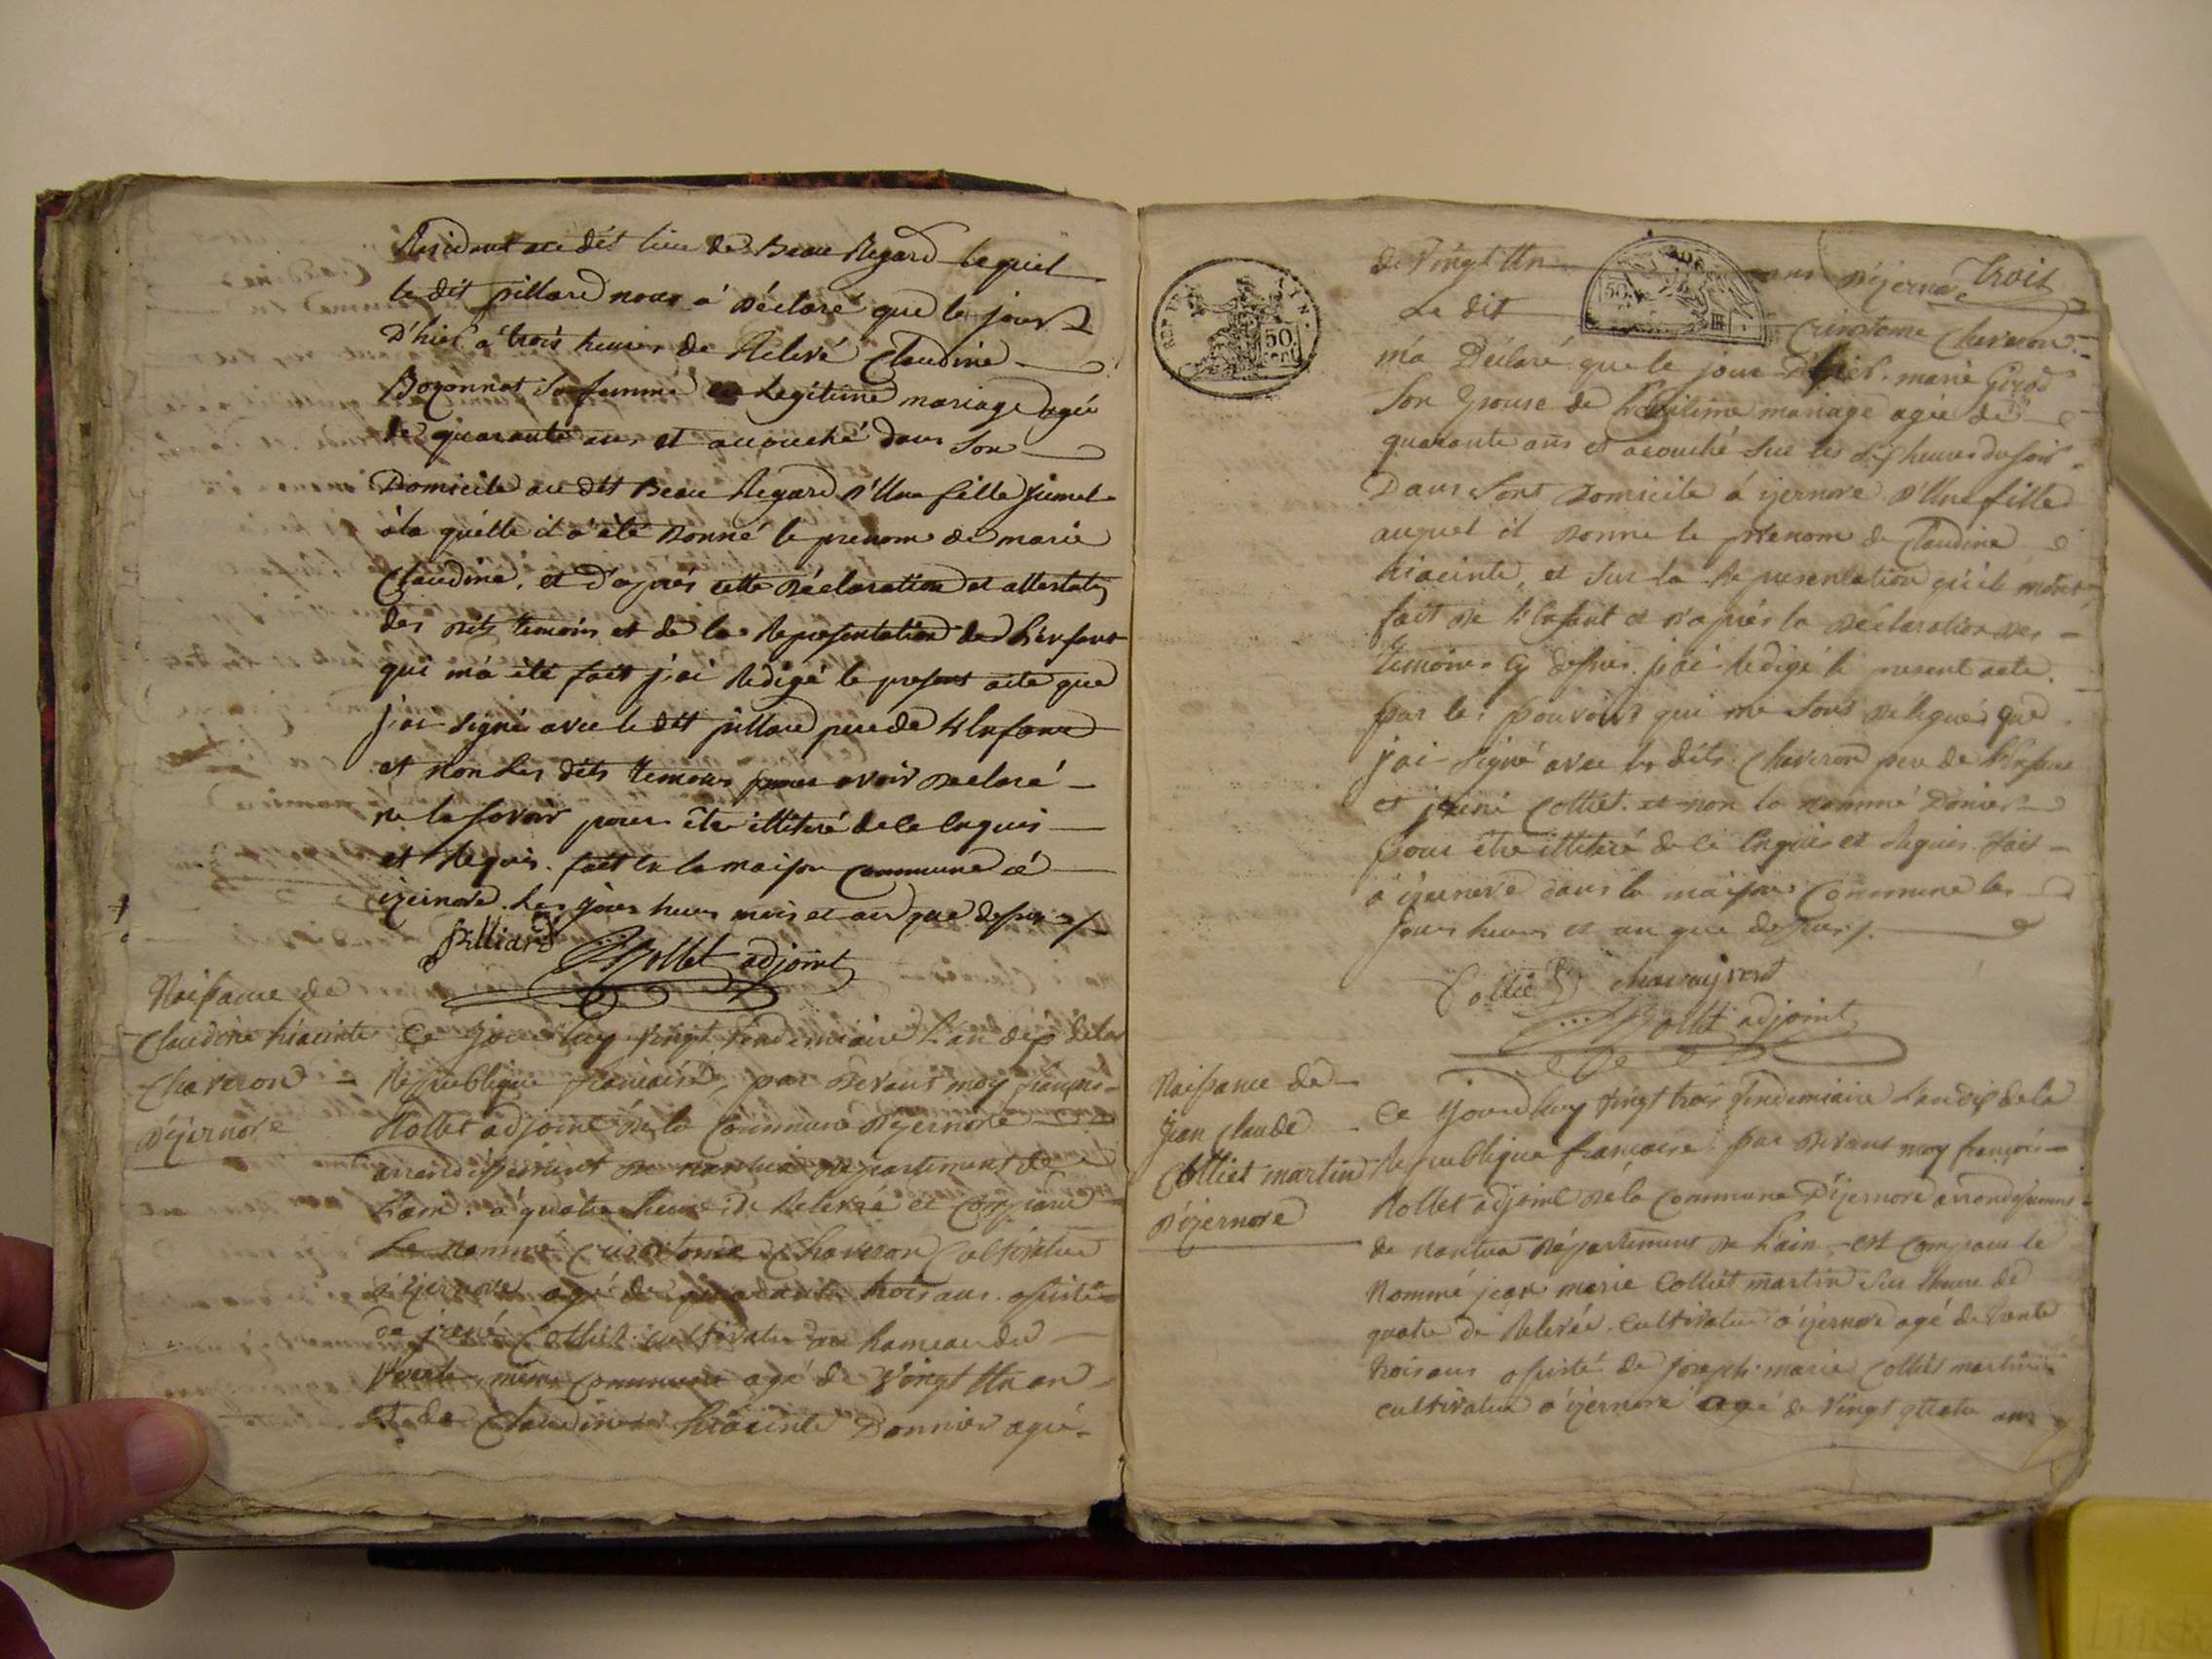 Residant au dit lieu de Beau Regard lequel
le dit pillard nous à Déclaré que le jour
D'hier à trois heures de Relevé Claudine
Bozonnet sa femme en Legitime mariage agée
de quarante ans et acouché dans son
Domicile au dit Beau Regard D'Une fille Jumel
à la quélle il à été Donné le prenom de marie
Claudine, et D'aprés cette Déclaration et attestat
des dits temoins et de la Representation de L'enfant
qui m'à été fait j'ai Rédigé le present acte que
j'ai Signé avec le dit pillard pere de L'Enfant
et non Les dits temoins pour avoir Declaré
ne le savoir pour être illiteré de ce Enquis
et Requis. fait En la maison Commune à
izernore. Les jour heure mois et an que dessus
pilliard
Rollet adjoint
Naissance de
Claudine hiacinte
Chaveron
D'izernore
Ce Jourd'huy Vingt Vendemiaire L'an dix de la
Republique francaise, par Devant moy françois
Rollet adjoint de la Commune D'izernore
arrondissement de nantua Departement de
L'ain. à quatre heures de Relevée et Comparu
Le nommé Crisostome Chaveron Cultivateur
à izernore agé de quarante trois ans. assisté
de jréné Colliet cultivateur au hameau du
même Commune agé de Vingt Un an
et de Claudine hiacinte Donnier agé
de Vingt Un ans D'izernore trois
Le dit Crisostome Chaveron
m'a Déclaré que le jour D'hier. marie Girod
Son Epouse de Legitime mariage agée de
quarante ans et acouché sur les dix heures du soir
Dans Sont Domicile à izernore D'Une fille
auquel il Donne le prenom de Claudine
hiacinte, et sur la Representation qu'il m'ont
fait de L'Enfant et d'aprés la Déclaration des
temoins Cy dessus. j'ai Redigé le present acte.
par les pouvoirs qui me Sont Délegués que
j'ai Signé avec les dits Chaveron pere de L'Enfant
et jréné Colliet. et non la nommé Donier
pour être illiteré de ce Enquis et Requis. fait
à izernore dans la maison Commune les
jours heures et an que dessus
Colliet chavayront
Rollet adjoint
Naissance de
Jean Claude
Colliet martin
D'izernore
Ce Jourd'huy Vingt trois Vendemiaire L'an dix de la
Republique francaise. par Devant moy françois
Rollet adjoint de la Commune D'izernore arrondissement
de nantua Département de L'ain, est Comparu le
Nommé jean marie Colliet martin sur lheure de
quatre de Relevée. cultivateur à izernore agé de trente
trois ans assisté de Joseph marie Colliet martin
cultivateur à izernore agé de Vingt quatre ans